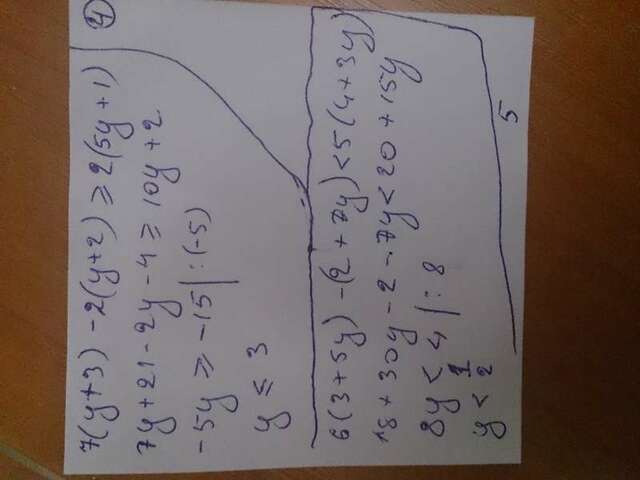 4
7(y+3)-2(y+2)≥2(5y+1)
7y+21-2y-4≥10y+2
-5y≥-15|:(-5)
y≤3
6(3+5y)-(2+7y)<5(4+3y)
18+30y-2-7y<20+15y
8y<4|:8
y<1/2
5